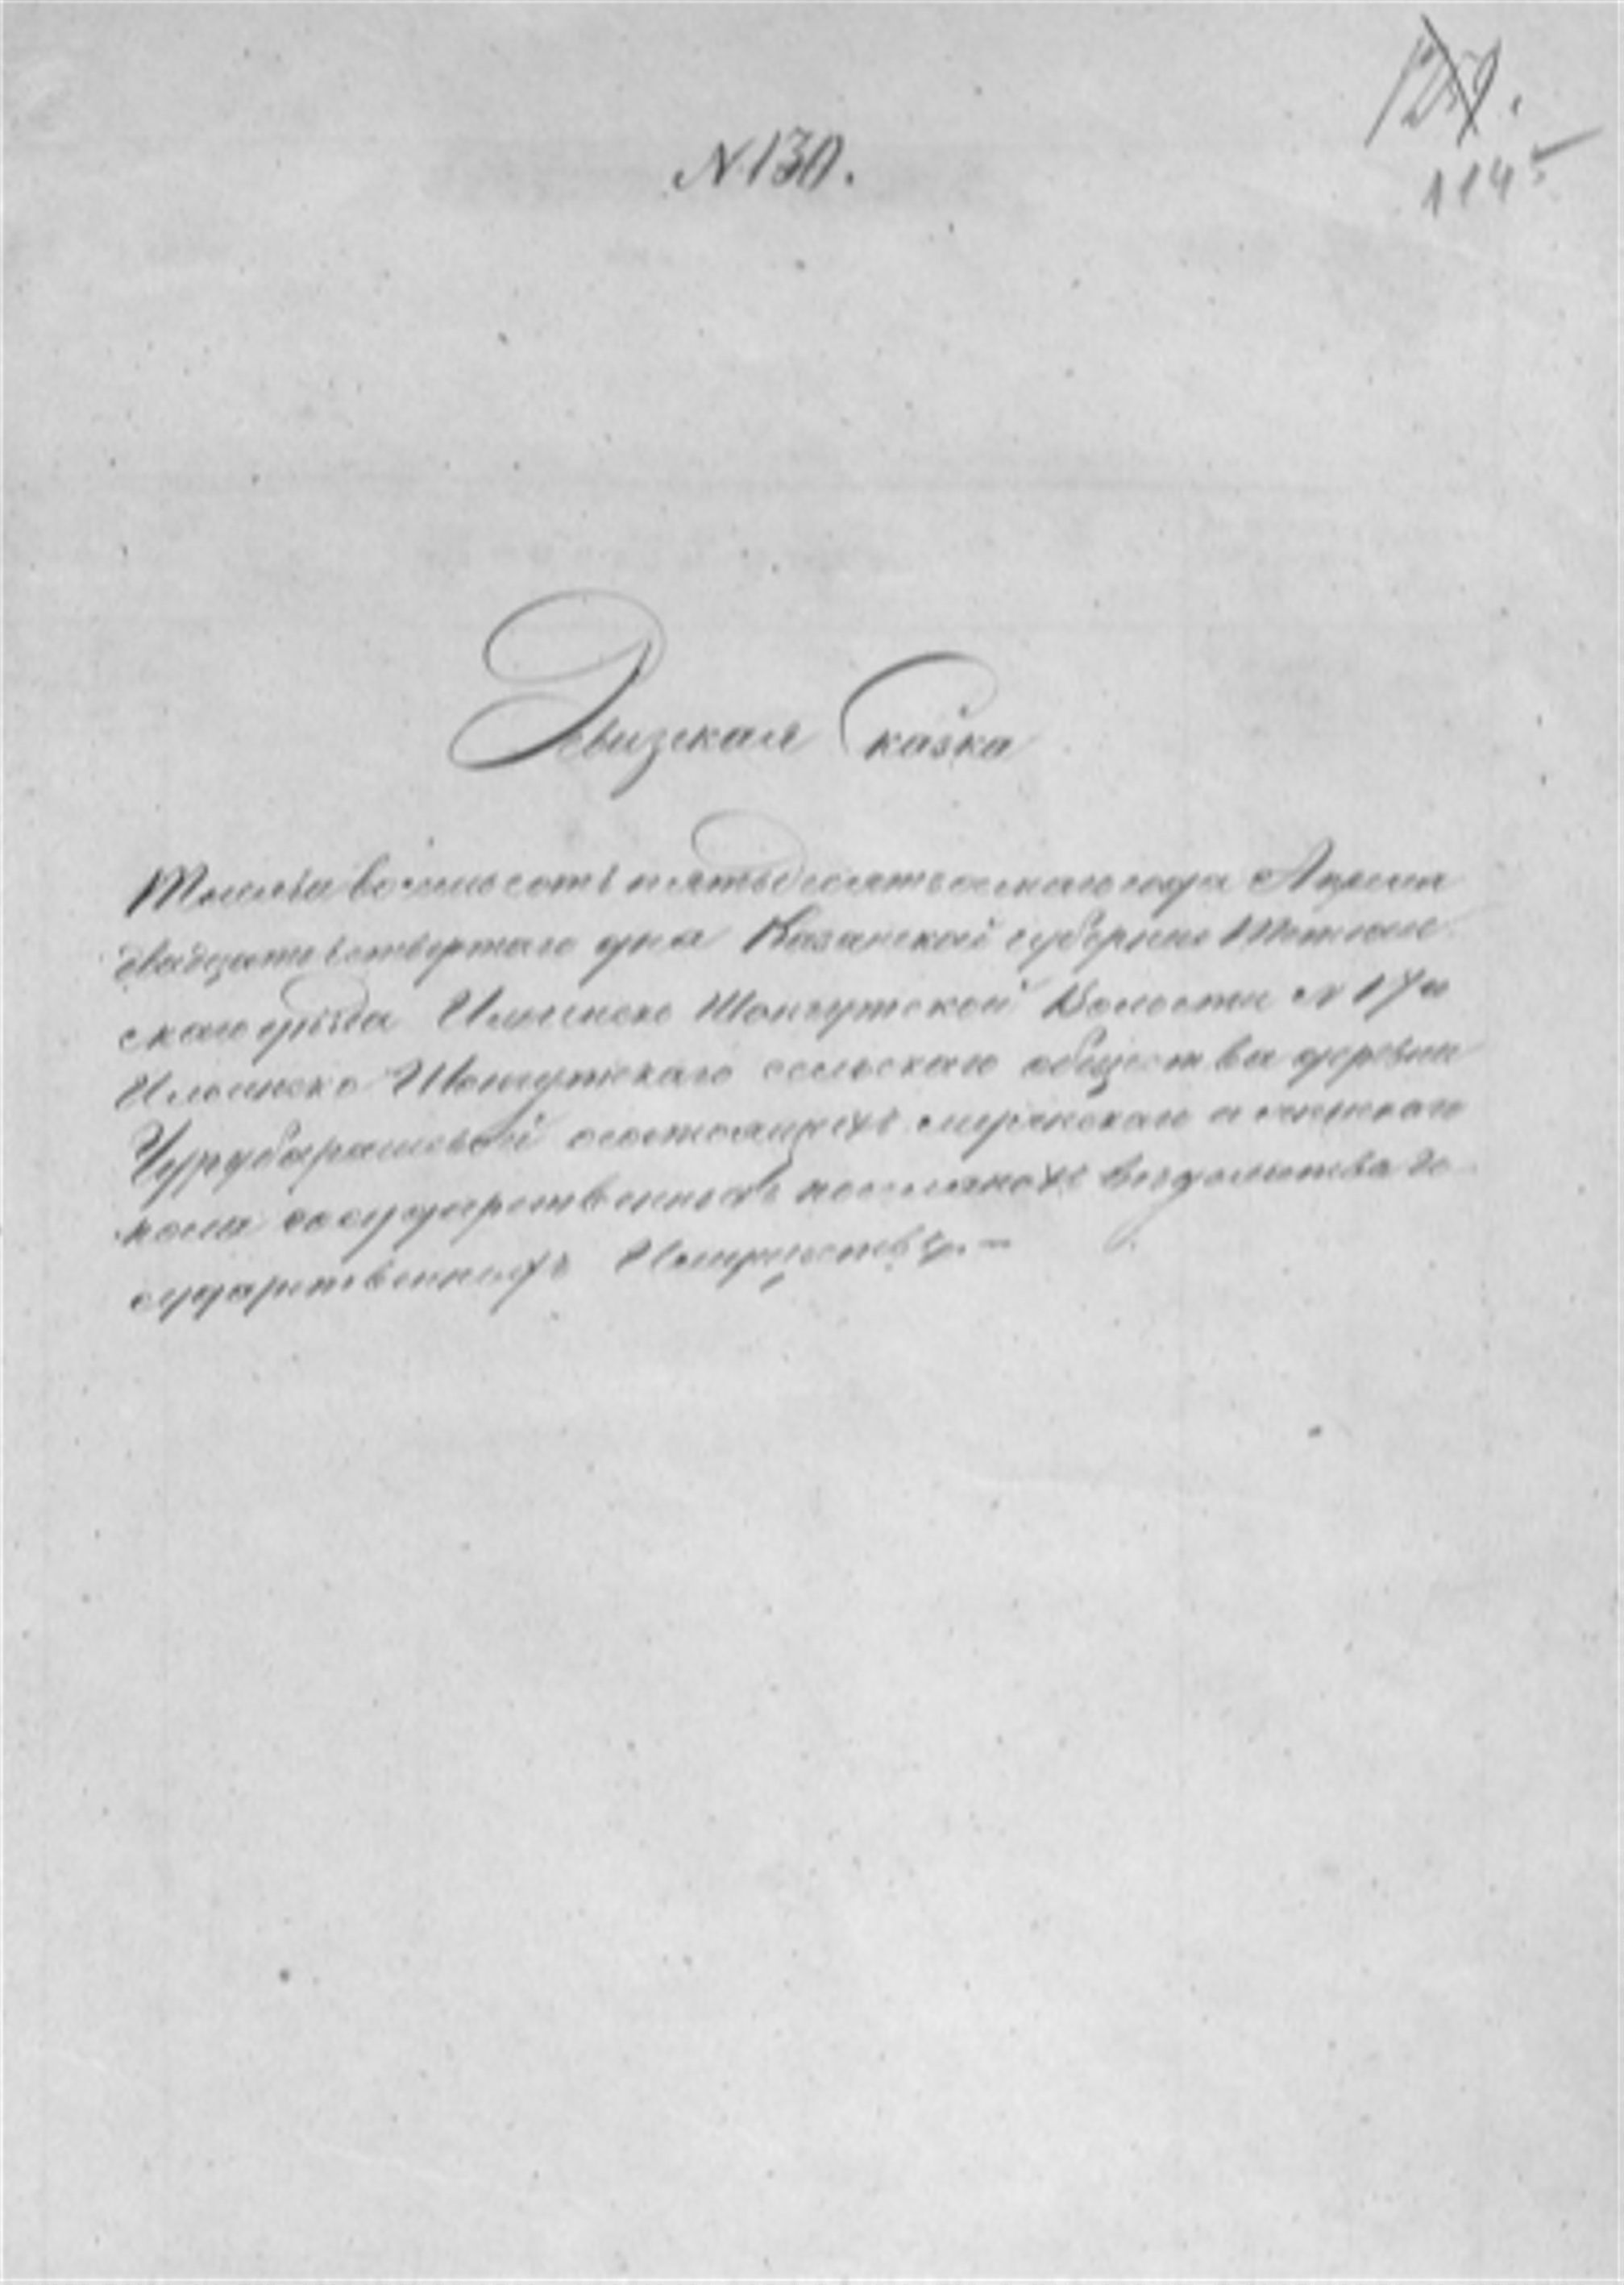 N 130.
114
Ревизская Сказка
Тысяча восемьсотъ пятьдесятъ осмаго года Апреля
двадцать четвертаго дня Казанской губернии Тетюш
скаго уѣзда Ильинско Шонгутской Волости N 17 и
Ильинско Шонгутскаго сельскаго общества деревни
Чурубарышевой состоящихъ
государственныхъ поселянахъ вѣдомства Го
сударственныхъ Имуществъ. —